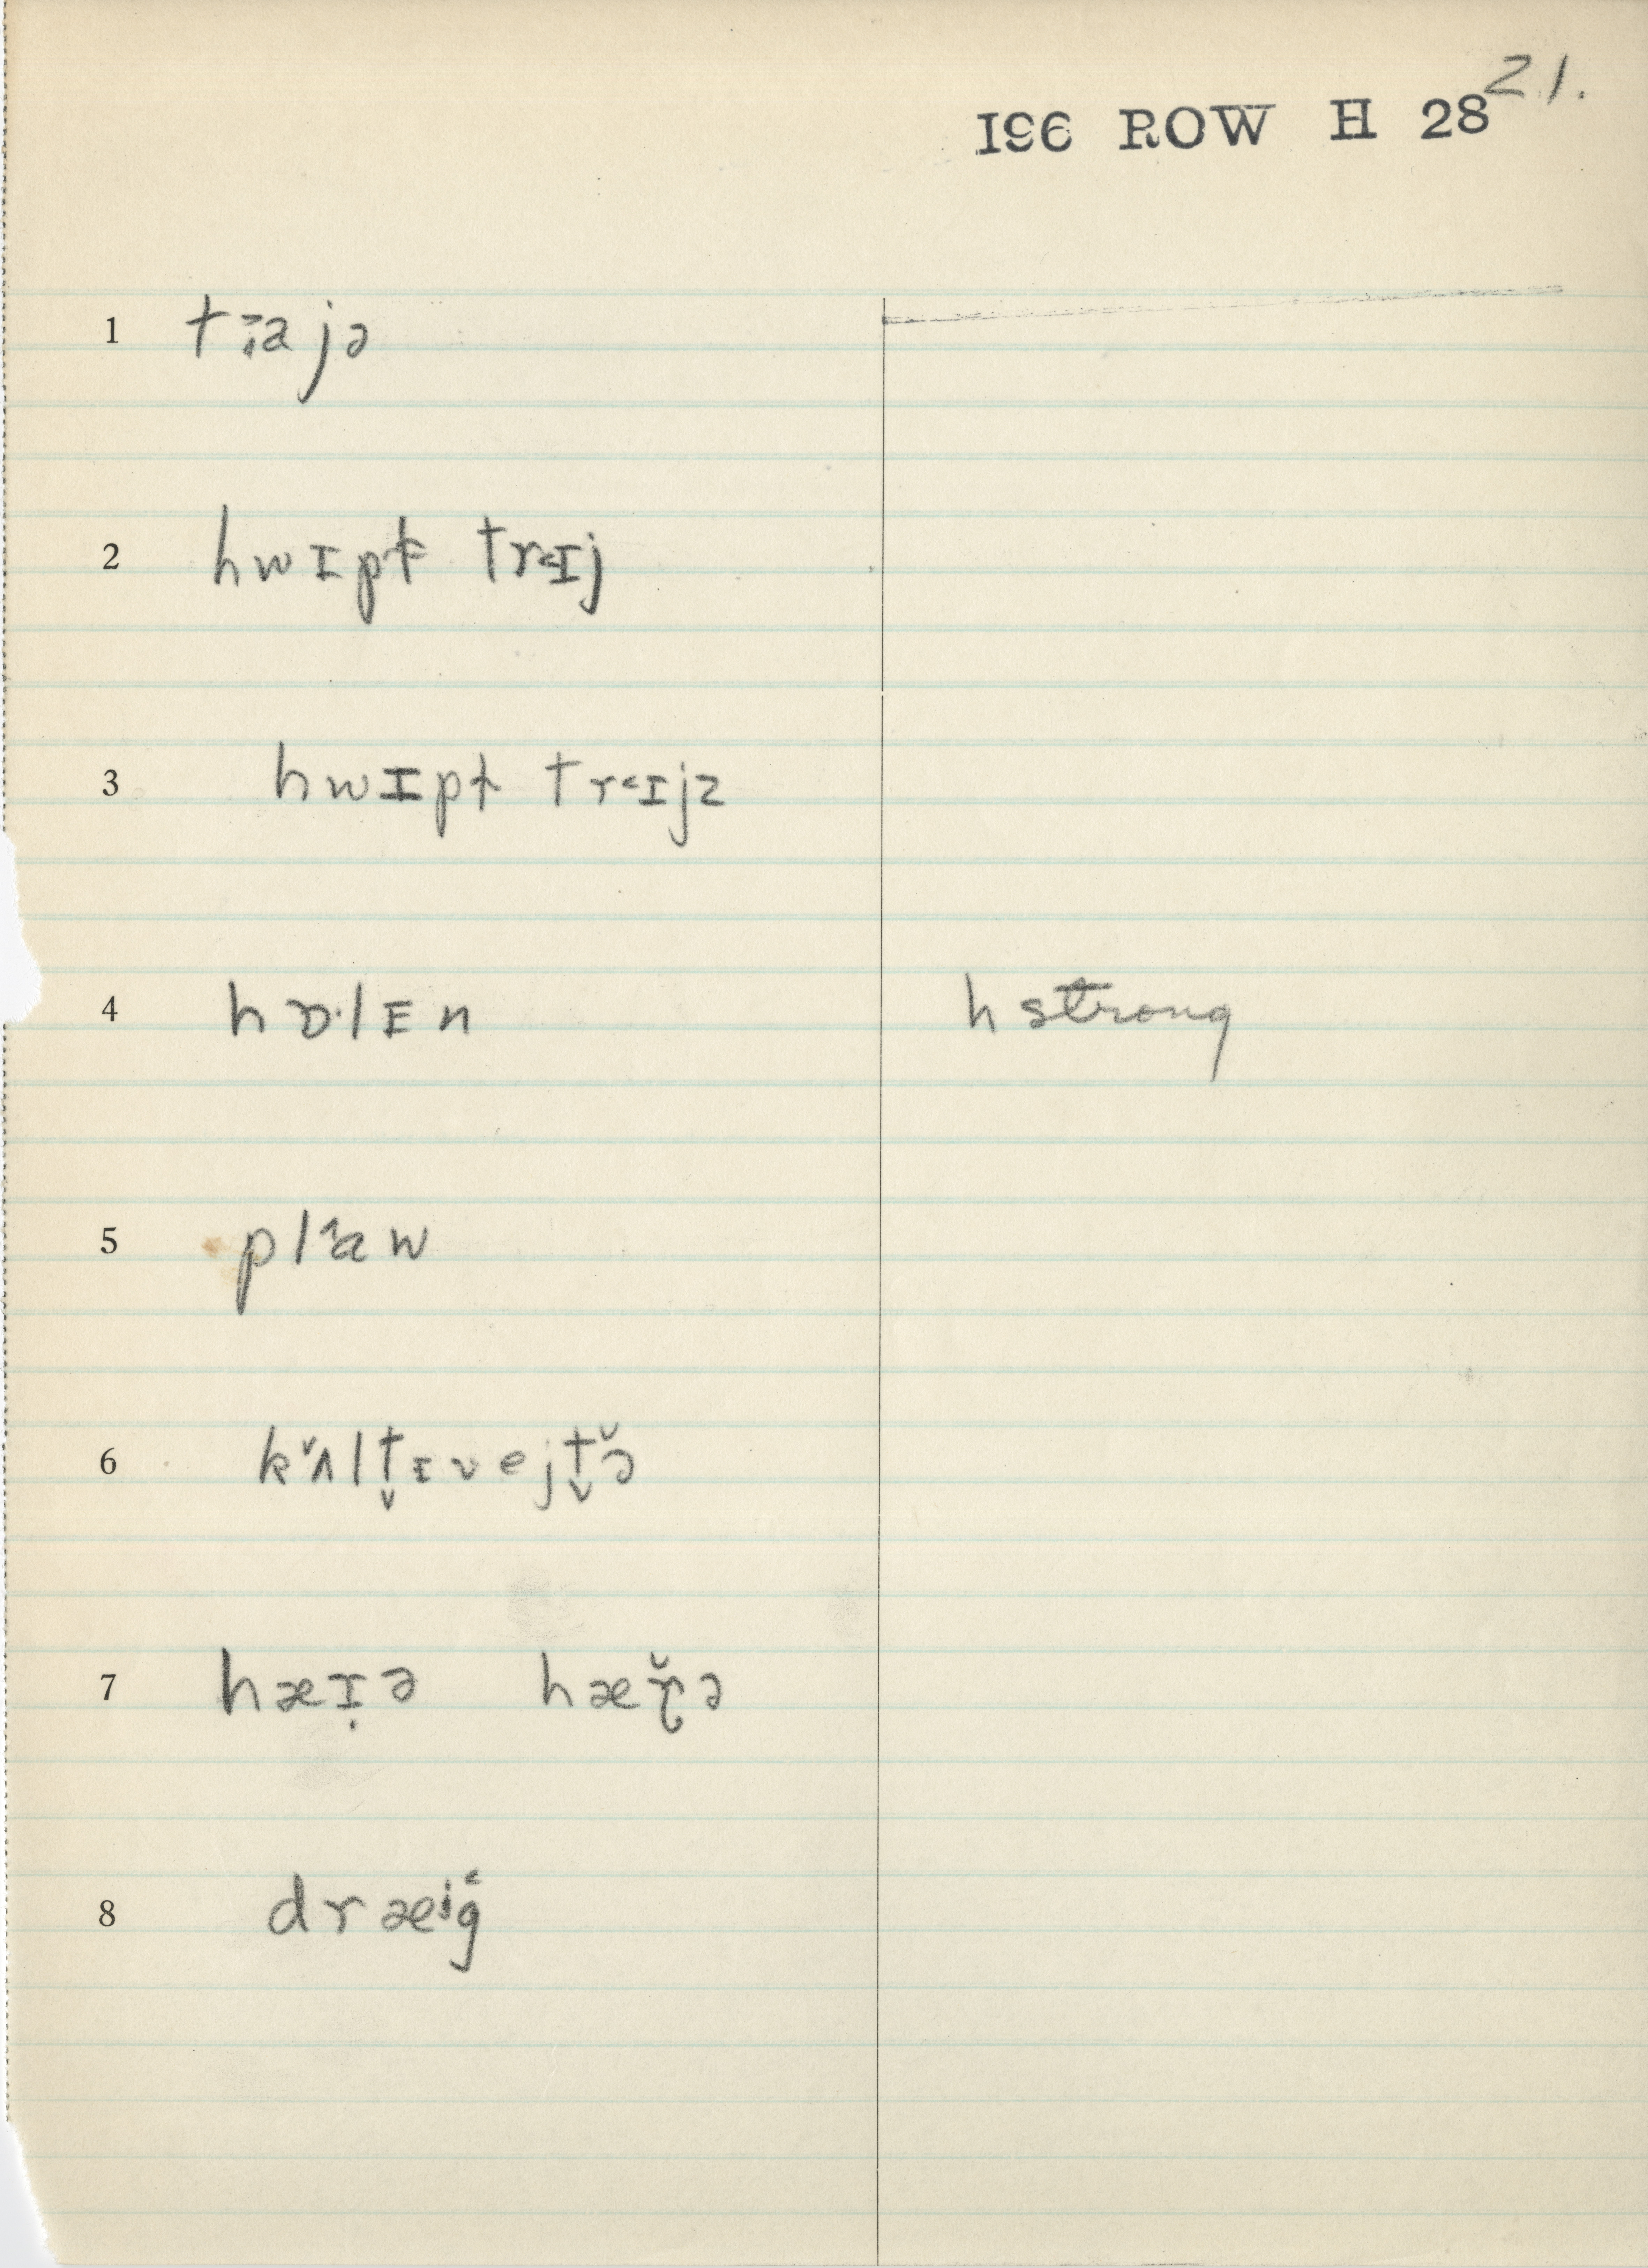 21.
196 ROW H 28
1 tɪ̯ajə
2 hwɪpt trɪj
3 hwɪpt trɪjz
4 hɒ·lɪn h strong
5 plaw
6 kʌ̌lt̬ɪvejt̬ə̌
7 hæɪ̣ə hæɾ̌ə
8 dræⁱg̒